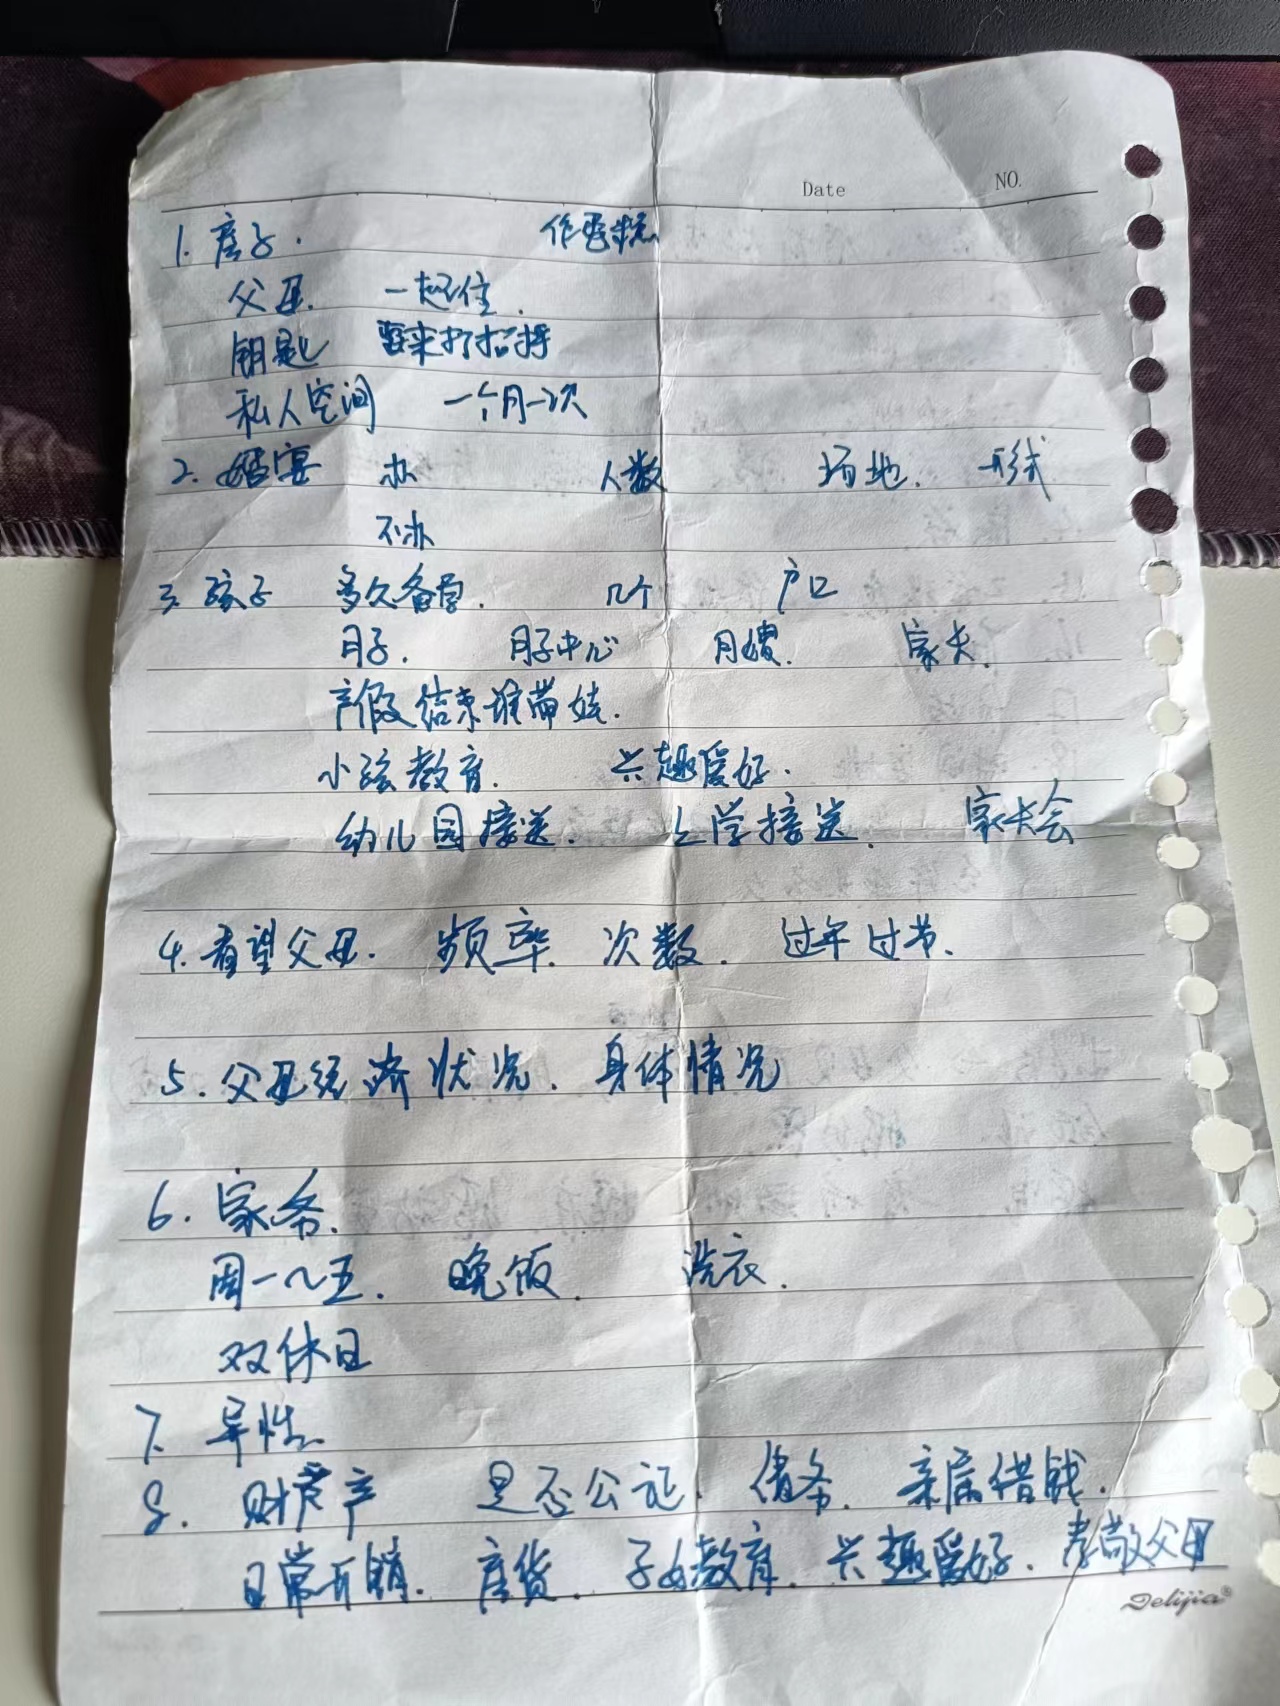 Date NO.
1. 房子.
父母. 一起住.
钥匙 要来打招呼
私人空间 一个月一次
2. 婚宴 办 人数 场地. 形式
不办
3. 孩子 多久备孕. 几个 户口
月子. 月子中心 月嫂. 家长.
产假结束谁带娃.
小孩教育. 兴趣爱好.
幼儿园接送. 上学接送. 家长会
4. 看望父母. 频率. 次数. 过年过节.
5. 父母经济状况. 身体情况
6. 家务.
周一~五. 晚饭. 洗衣.
双休日
7. 异性.
8. 财产 是否公证. 债务. 亲属借钱.
日常开销. 房贷. 子女教育. 兴趣爱好. 孝敬父母
Delijia®